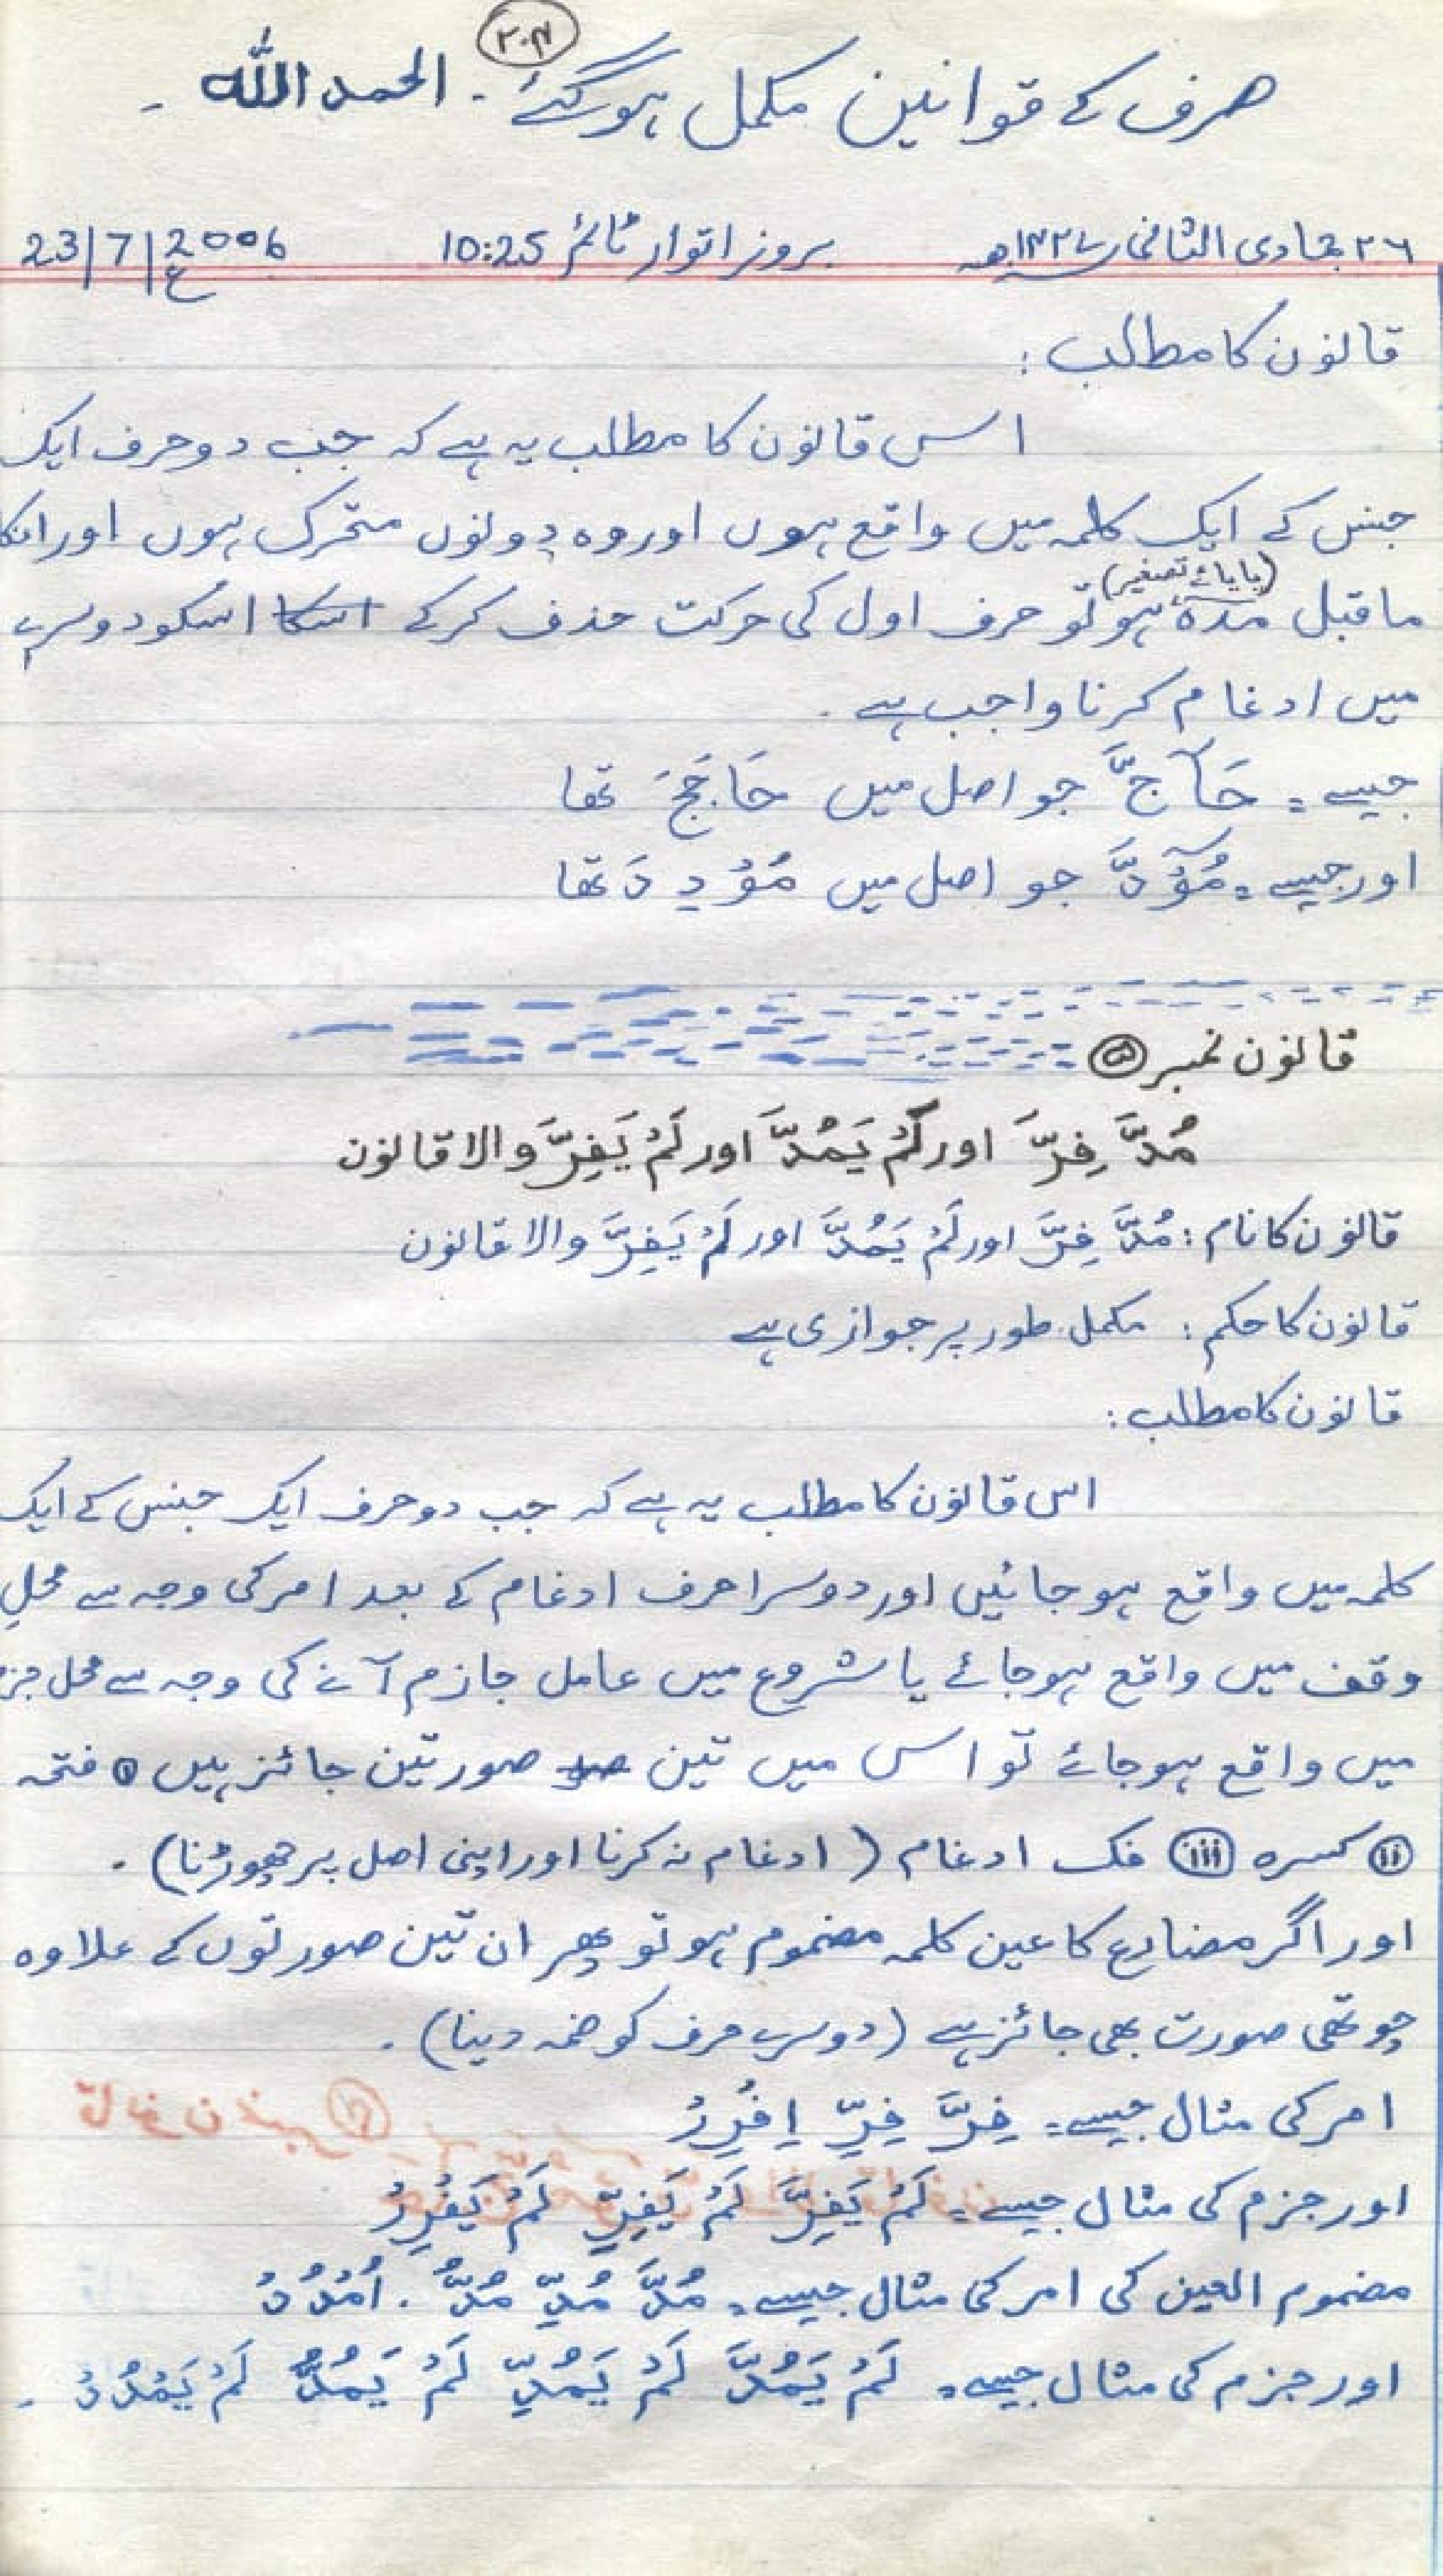 ۲۰۴
صرف کے قوانین مکمل ہوگئے ۔ الحمد اللہ ۔
۲۶ جمادی الثانی ۱۴۲۷ھ بروز اتوار ٹائم 10:25 23/7/2006ء
قانون کا مطالب :
اس قانون کا مطلب یہ ہے کہ جب دو حرف ایک
جنس کے ایک کلمہ میں واقع ہوں اور وہ دونوں متحرک ہوں اور انکا
(یا یائے تصغیر)
ماقبل مدہ ہو تو حرف اول کی حرکت حذف کرکے اسکا اسکو دوسرے
میں ادغام کرنا واجب ہے ۔
جیسے = حَآجَّ جو اصل میں حَاجَجَ تھا
اور جیسے = مُوْٓدَّ جو اصل میں مُوْدِدَ تھا
قانون نمبر ⑤
مُدَّ فِرَّ اور لَمْ یَمُدَّ اور لَمْ یَفِرَّ والا قانون
قانون کا نام : مُدَّ فِرَّ اور لَمْ یَمُدَّ اور لَمْ یَفِرَّ والا قانون
قانون کا حکم : مکمل طور پر جوازی ہے
قانون کا مطالب :
اس قانون کا مطلب یہ ہے کہ جب دو حرف ایک جنس کے ایک
کلمہ میں واقع ہو جائیں اور دوسرا حرف ادغام کے بعد امر کی وجہ سے محلِ
وقف میں واقع ہوجائے یا شروع میں عامل جازم آنے کی وجہ سے محل جزم
میں واقع ہوجائے تو اس میں تین صو صورتین جائز ہیں ⓘ فتحہ
(ii) کسرہ (iii) فک ادغام ( ادغام نہ کرنا اور اپنی اصل پر چھوڑنا) ۔
اور اگر مضارع کا عین کلمہ مضموم ہو تو پھر ان تین صورتوں کے علاوہ
چوتھی صورت بھی جائز ہے (دوسرے حرف کو ضمہ دینا) ۔
امر کی مثال جیسے = فِرَّ فِرِّ اِفْرِرْ
اور جزم کی مثال جیسے = لَمْ یَفِرَّ لَمْ یَفِرِّ لَمْ یَفْرِرْ
مضموم العین کی امر کی مثال جیسے = مُدَّ مُدِّ مُدُّ . اُمْدُدْ
اور جزم کی مثال جیسے = لَمْ یَمُدَّ لَمْ یَمُدِّ لَمْ یَمُدُّ لَمْ یَمْدُدْ ۔